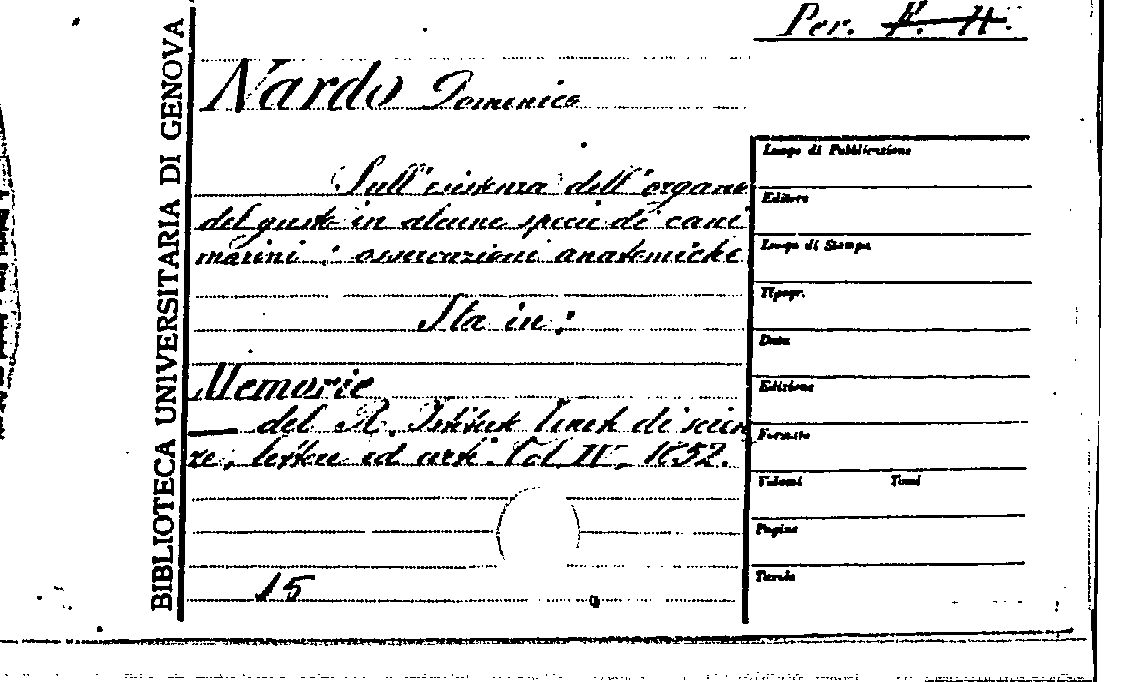 Per. F. H.
BIBLIOTECA UNIVERSITARIA DI GENOVA
Nardo Domenico
Sull'esistenza dell'organo
del gusto in alcune specie di cani
marini : osservazioni anatomiche
Sta in :
Memorie
del R. Istituto Veneto di scien
ze, lettere ed arti. Vol. IV, 1852.
15
Luogo di Pubblicazione
Editore
Luogo di Stampa
Tipogr.
Data
Edizione
Formato
Volumi Tomi
Pagine
Tavole